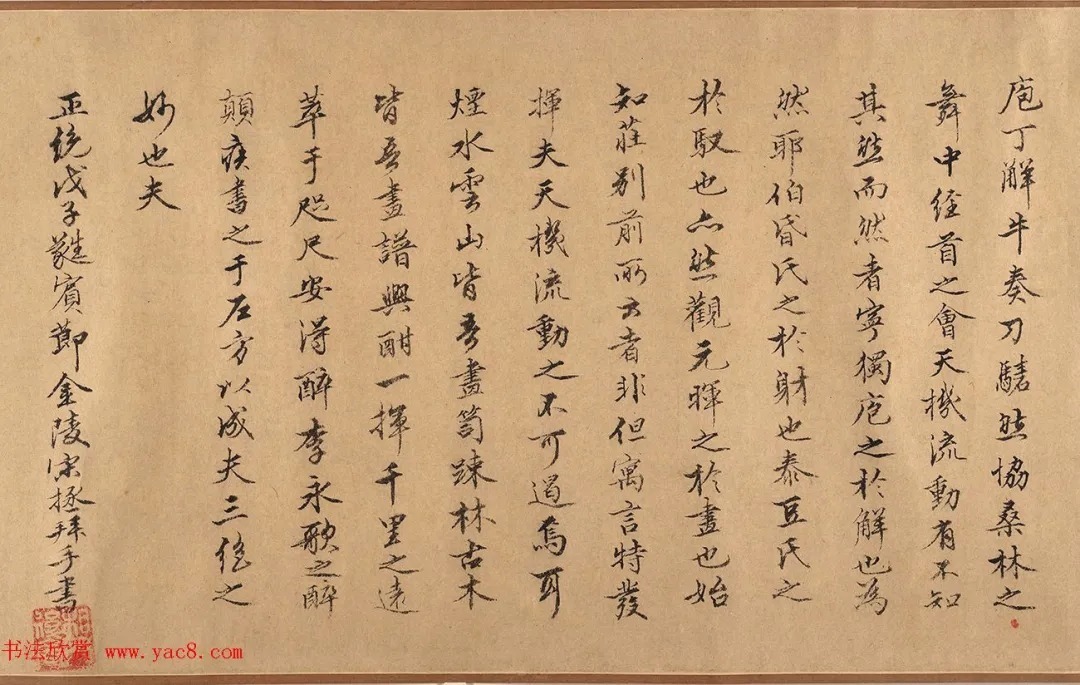 庖丁解牛奏刀騞然協桑林之
舞中经首之會天機流動有不知
其然而然者寧獨庖之於解也為
然耶伯昏氏之於射也泰豆氏之
於馭也亦然觀元暉之於畫也始
知莊列前所云者非但寓言特發
揮夫天機流動之不可遏焉耳
煙水雲山皆吾畫笥踈林古木
皆吾畫譜興酣一揮千里之遠
萃于咫尺安得醉李永歌之醉
顛疾書之于左方以成夫三绝之
妙也夫
正统戊子蕤賓節金陵宋拯拜手書
书法欣赏 www.yac8.com